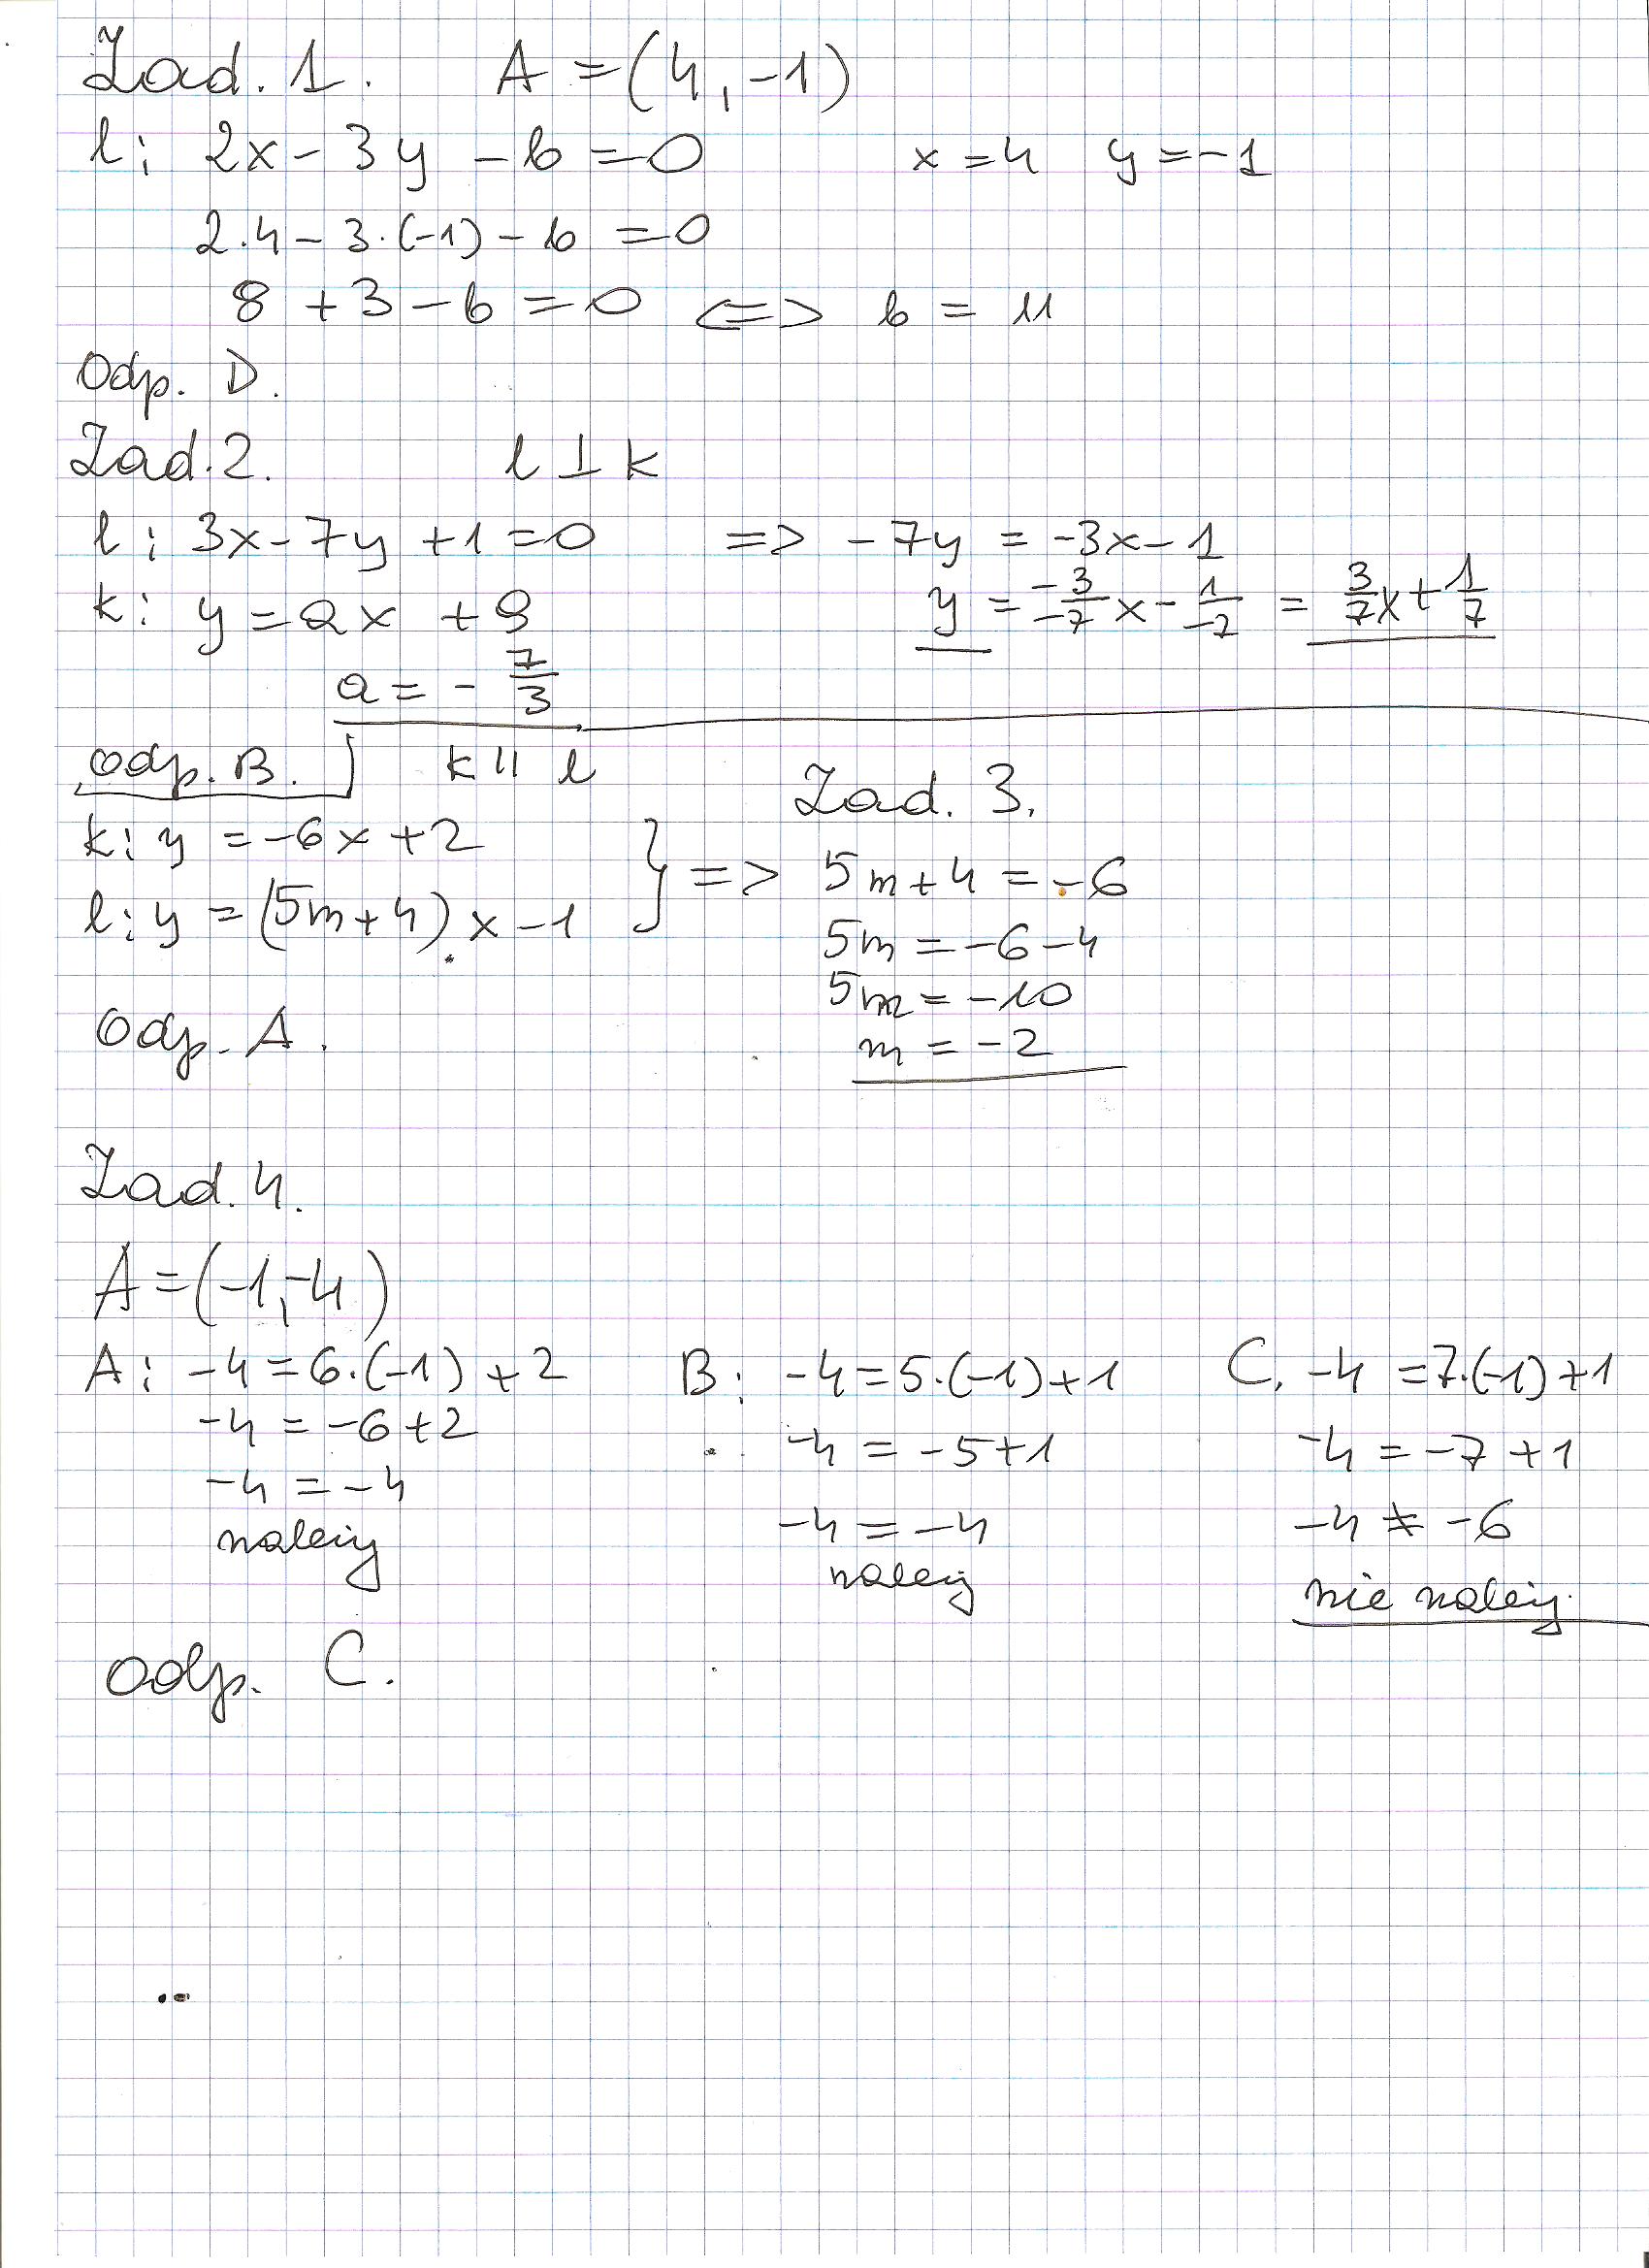 Zad. 1. A = (4, -1)
l: 2x - 3y - b = 0 x = 4 y = -1
2·4 - 3·(-1) - b = 0
8 + 3 - b = 0 <=> b = 11
Odp. D.
Zad. 2. l ⊥ k
l: 3x - 7y + 1 = 0 => -7y = -3x - 1
k: y = ax + 9 y = -3/-7 x - 1/-7 = 3/7 x + 1/7
a = - 7/3
odp. B. k || l Zad. 3.
k: y = -6x + 2
l: y = (5m + 4)x - 1 } => 5m + 4 = -6
5m = -6 - 4
5m = -10
Odp. A. m = -2
Zad. 4.
A = (-1, -4)
A: -4 = 6·(-1) + 2 B: -4 = 5·(-1) + 1 C. -4 = 7·(-1) + 1
-4 = -6 + 2 -4 = -5 + 1 -4 = -7 + 1
-4 = -4 -4 = -4 -4 ≠ -6
należy należy nie należy.
odp. C.